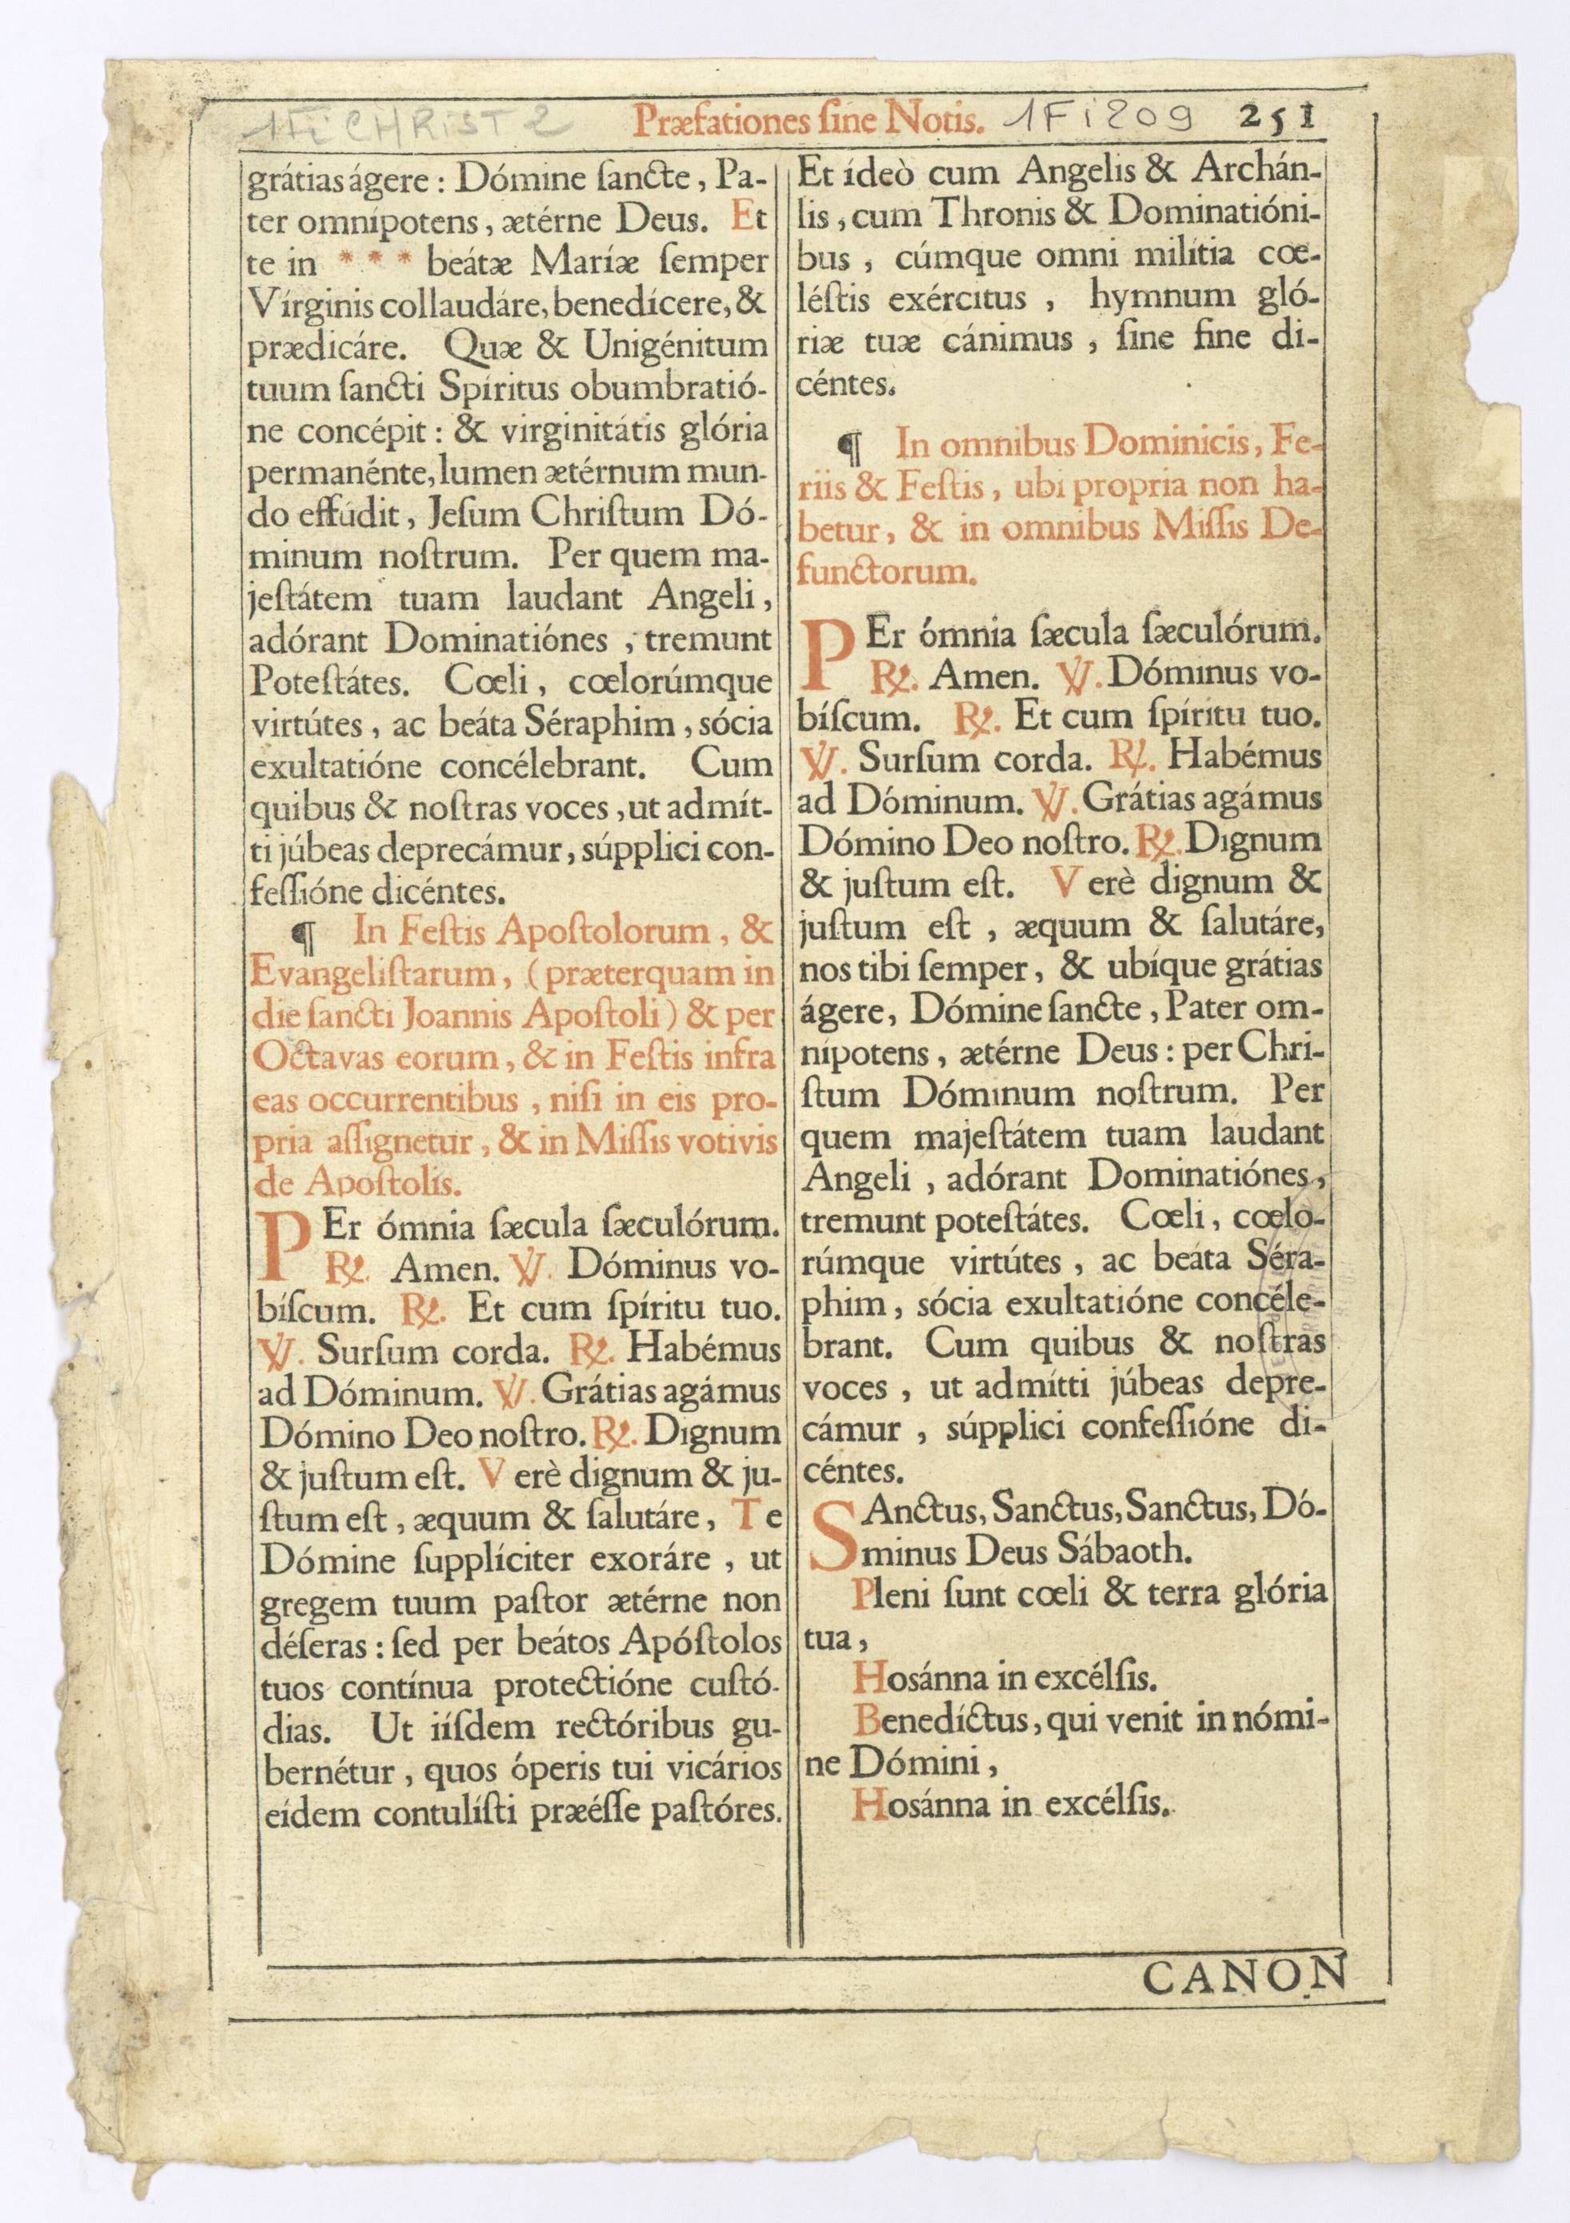 1Fi CHRIST 2
Præfationes ſine Notis.
1Fi209
251
grátias ágere : Dómine ſancte, Pa-
ter omnípotens, ætérne Deus. Et
te in * * * beátæ Maríæ ſemper
Vírginis collaudáre, benedícere, &
prædicáre. Quæ & Unigénitum
tuum ſancti Spíritus obumbratió-
ne concépit : & virginitátis glória
permanénte, lumen ætérnum mun-
do effúdit, Jeſum Chriſtum Dó-
minum noſtrum. Per quem ma-
jeſtátem tuam laudant Angeli,
adórant Dominatiónes, tremunt
Poteſtátes. Cœli, cœlorúmque
virtútes, ac beáta Séraphim, sócia
exultatióne concélebrant. Cum
quibus & noſtras voces, ut admít-
ti júbeas deprecámur, súpplici con-
feſſióne dicéntes.
¶ In Feſtis Apoſtolorum, &
Evangeliſtarum, (præterquam in
die ſancti Joannis Apoſtoli) & per
Octavas eorum, & in Feſtis infra
eas occurrentibus, niſi in eis pro-
pria aſſignetur, & in Miſſis votivis
de Apoſtolis.
PEr ómnia ſæcula ſæculórum.
℟. Amen. ℣. Dóminus vo-
bíſcum. ℟. Et cum ſpíritu tuo.
℣. Surſum corda. ℟. Habémus
ad Dóminum. ℣. Grátias agámus
Dómino Deo noſtro. ℟. Dignum
& juſtum eſt. Verè dignum & ju-
ſtum eſt, æquum & ſalutáre, Te
Dómine ſupplíciter exoráre, ut
gregem tuum paſtor ætérne non
déſeras : ſed per beátos Apóſtolos
tuos contínua protectióne cuſtó-
dias. Ut iíſdem rectóribus gu-
bernétur, quos óperis tui vicários
eídem contulíſti præéſſe paſtóres.
Et ídeò cum Angelis & Archán-
lis, cum Thronis & Dominatióni-
bus, cúmque omni milítia cœ-
léſtis exércitus, hymnum gló-
riæ tuæ cánimus, ſine fine di-
céntes.
¶ In omnibus Dominicis, Fe-
riis & Feſtis, ubi propria non ha-
betur, & in omnibus Miſſis De-
functorum.
PEr ómnia ſæcula ſæculórum.
℟. Amen. ℣. Dóminus vo-
bíſcum. ℟. Et cum ſpíritu tuo.
℣. Surſum corda. ℟. Habémus
ad Dóminum. ℣. Grátias agámus
Dómino Deo noſtro. ℟. Dignum
& juſtum eſt. Verè dignum &
juſtum eſt, æquum & ſalutáre,
nos tibi ſemper, & ubíque grátias
ágere, Dómine ſancte, Pater om-
nípotens, ætérne Deus : per Chri-
ſtum Dóminum noſtrum. Per
quem majeſtátem tuam laudant
Angeli, adórant Dominatiónes,
tremunt poteſtátes. Cœli, cœlo-
rúmque virtútes, ac beáta Séra-
phim, sócia exultatióne concéle-
brant. Cum quibus & noſtras
voces, ut admítti júbeas depre-
cámur, súpplici confeſſióne di-
céntes.
SAnctus, Sanctus, Sanctus, Dó-
minus Deus Sábaoth.
Pleni ſunt cœli & terra glória
tua,
Hosánna in excélſis.
Benedíctus, qui venit in nómi-
ne Dómini,
Hosánna in excélſis.
CANON